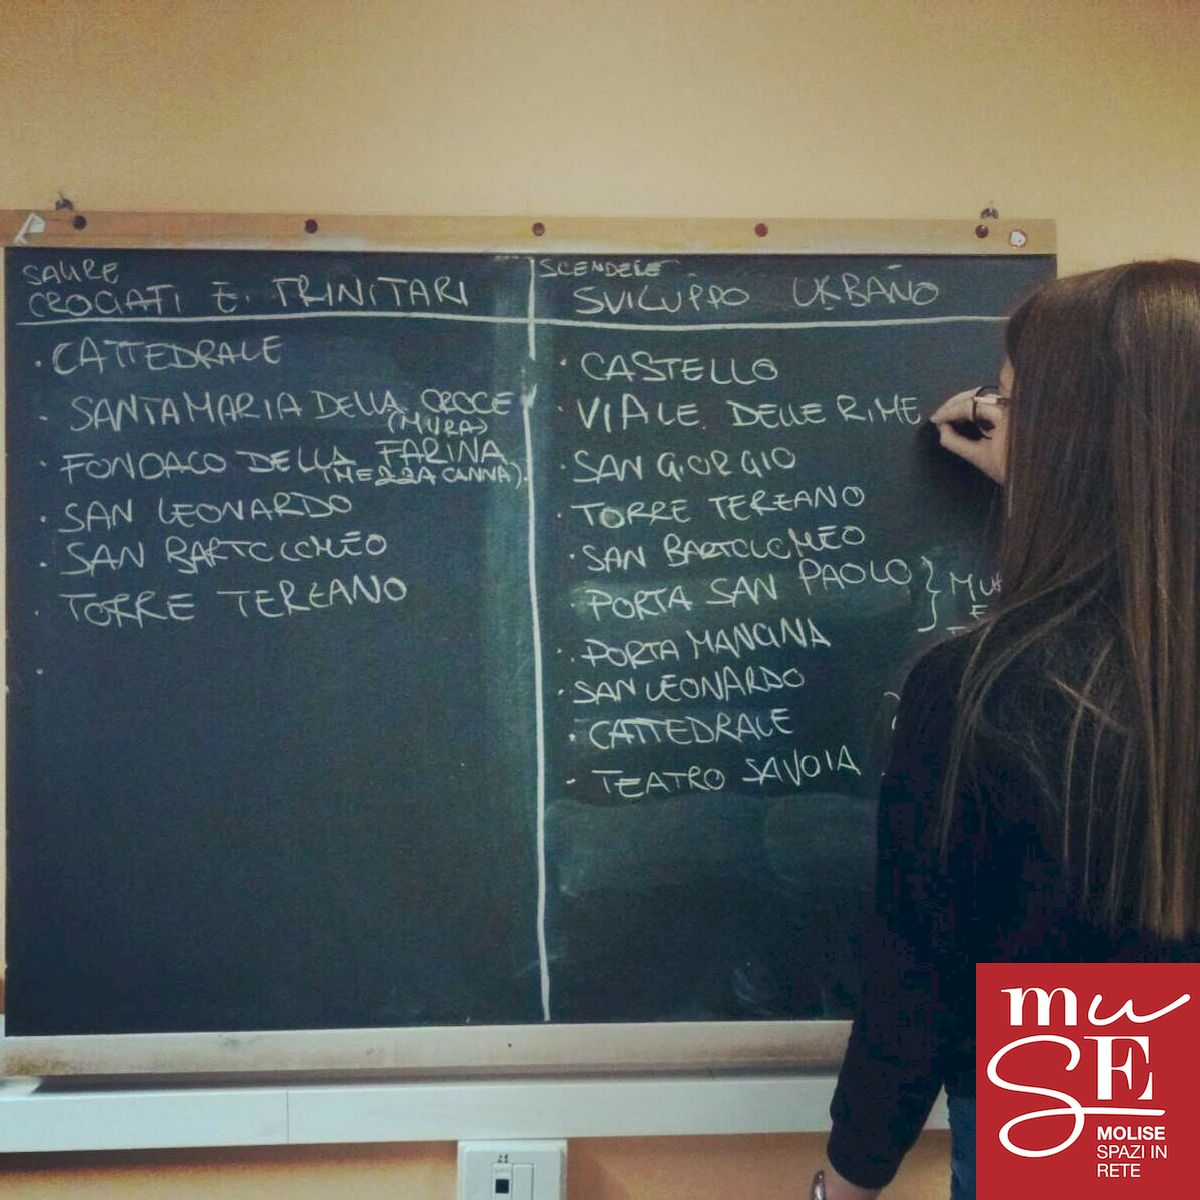 SALIRE
CROCIATI E TRINITARI
· CATTEDRALE
· SANTA MARIA DELLA CROCE
(MURA)
· FONDACO DELLA FARINA
(MEZZA CANNA)
· SAN LEONARDO
· SAN BARTOLOMEO
· TORRE TERZANO
SCENDERE
SVILUPPO URBANO
· CASTELLO
· VIALE DELLE RIME
· SAN GIORGIO
· TORRE TERZANO
· SAN BARTOLOMEO
· PORTA SAN PAOLO }
· PORTA MANCINA
· SAN LEONARDO
· CATTEDRALE
· TEATRO SAVOIA
muSE
MOLISE
SPAZI IN
RETE